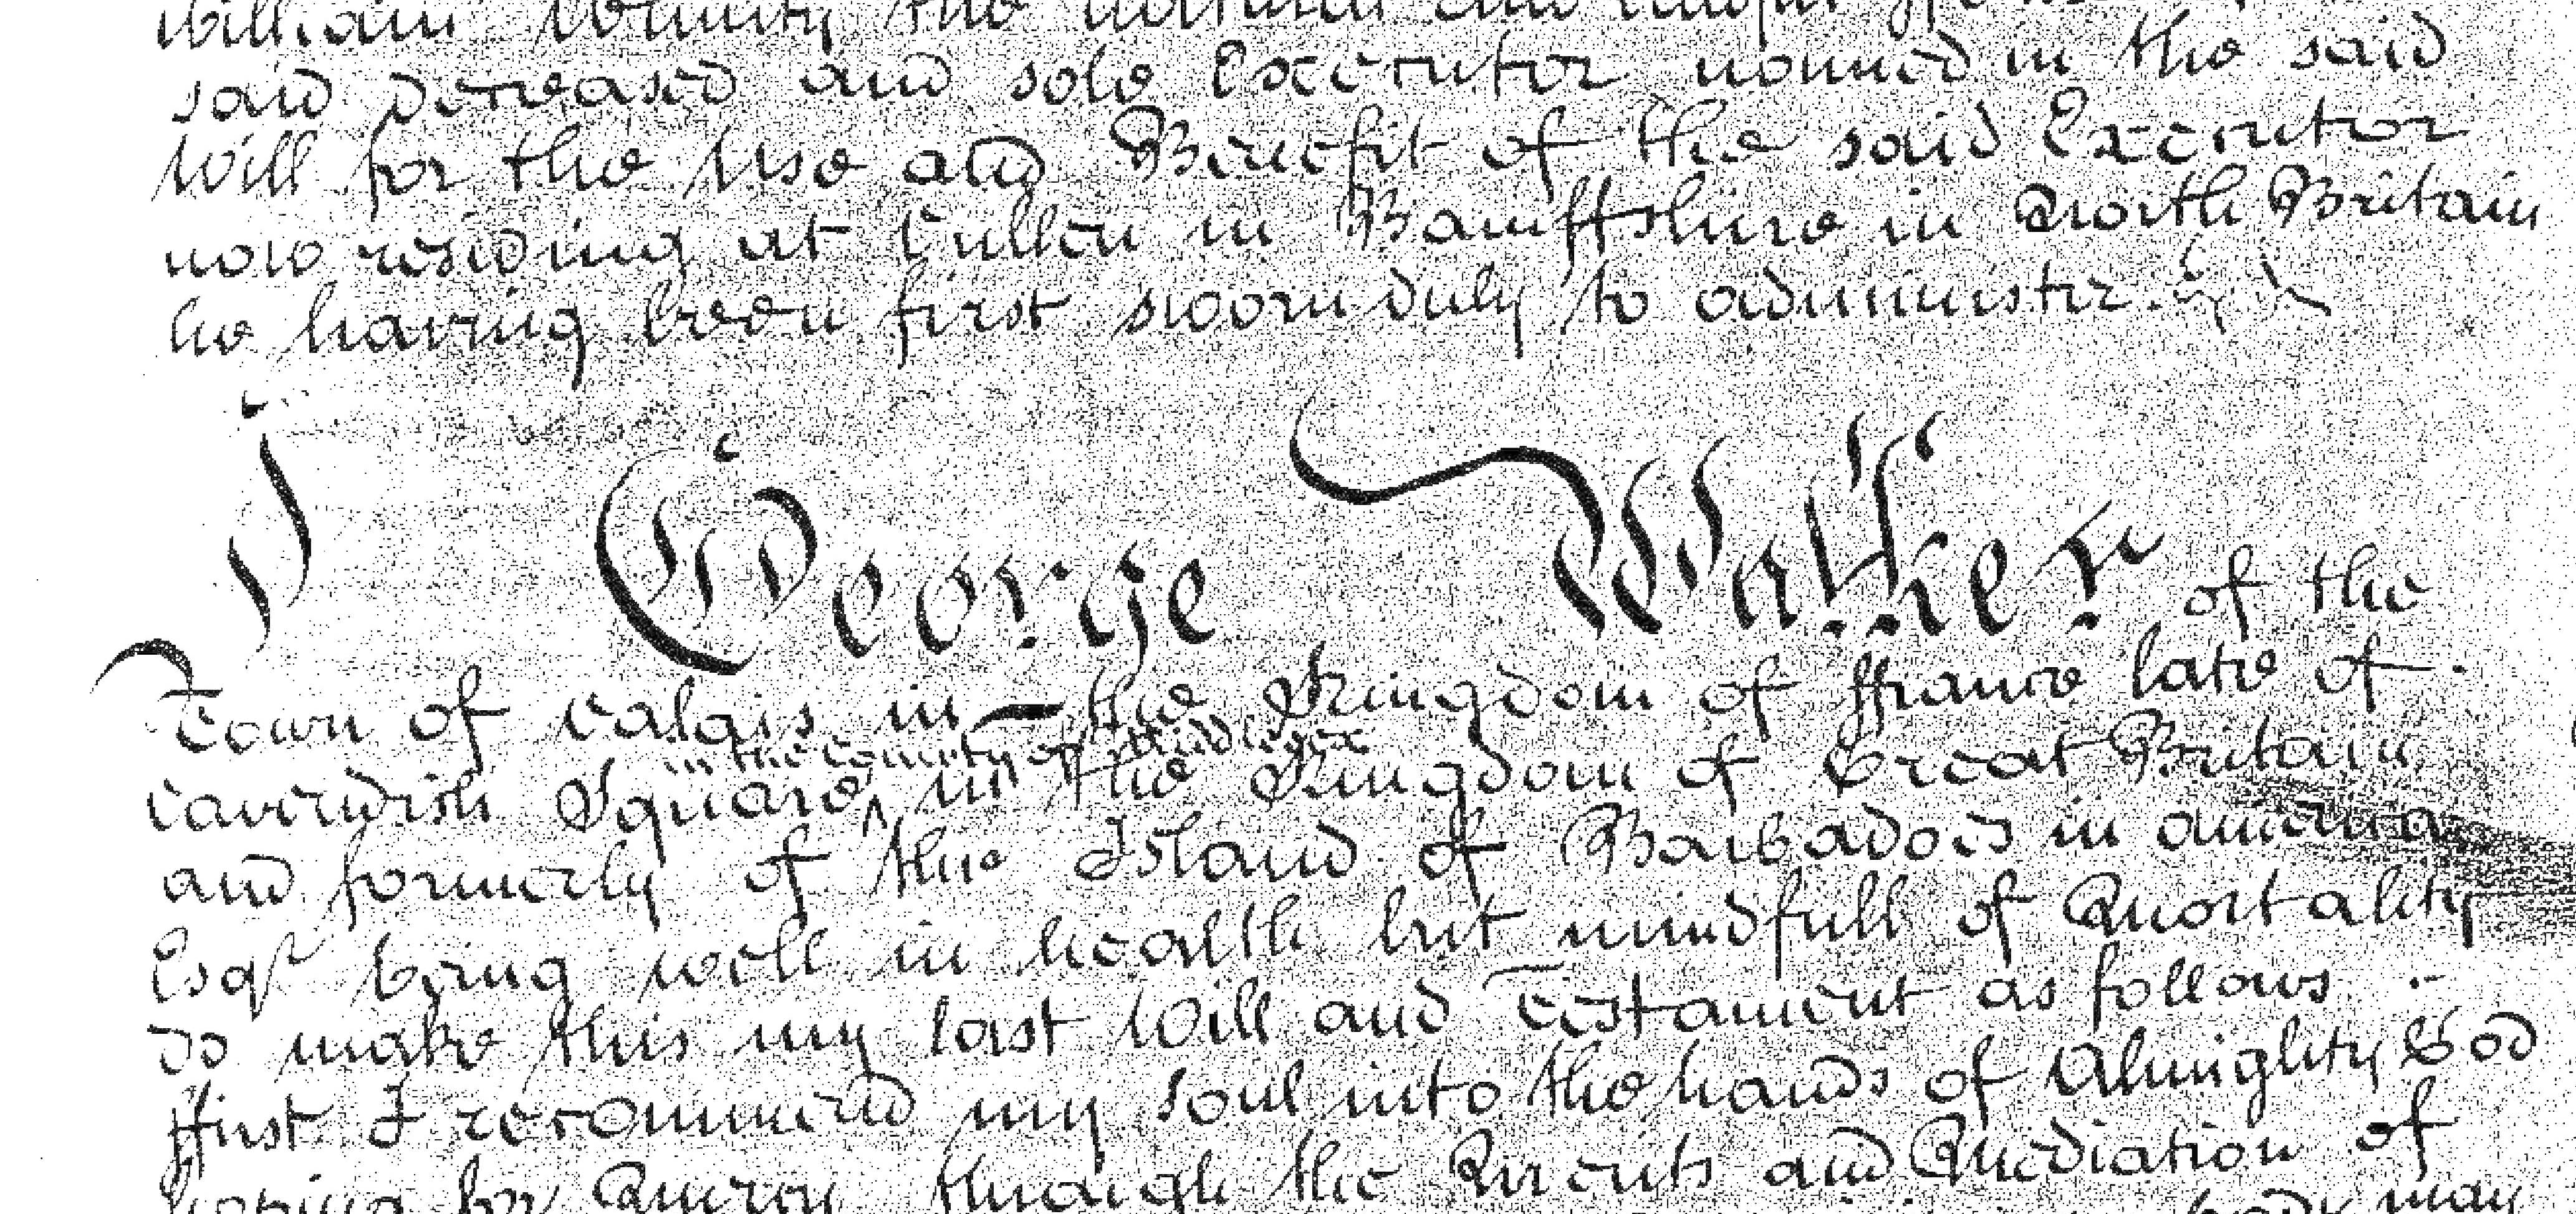 William the natural and lawful
said deceased and sole Executor named in the said
Will for the Use and Benefit of the said Executor
now residing at Cullen in Bamffshire in North Britain
he having been first sworn duly to administer.
I George Walker of the
Town of Calais in the Kingdom of ffrance late of
in the County of Middlesex
Cavendish Square ^ in the Kingdom of Great Britain
and formerly of the Island of Barbadoes in America
Esqr being well in health but mindfull of Mortality
do make this my last Will and Testament as follows
ffirst I recommend my Soul into the hands of Almighty God
hoping for Mercy through the Merits and Mediation of
body may